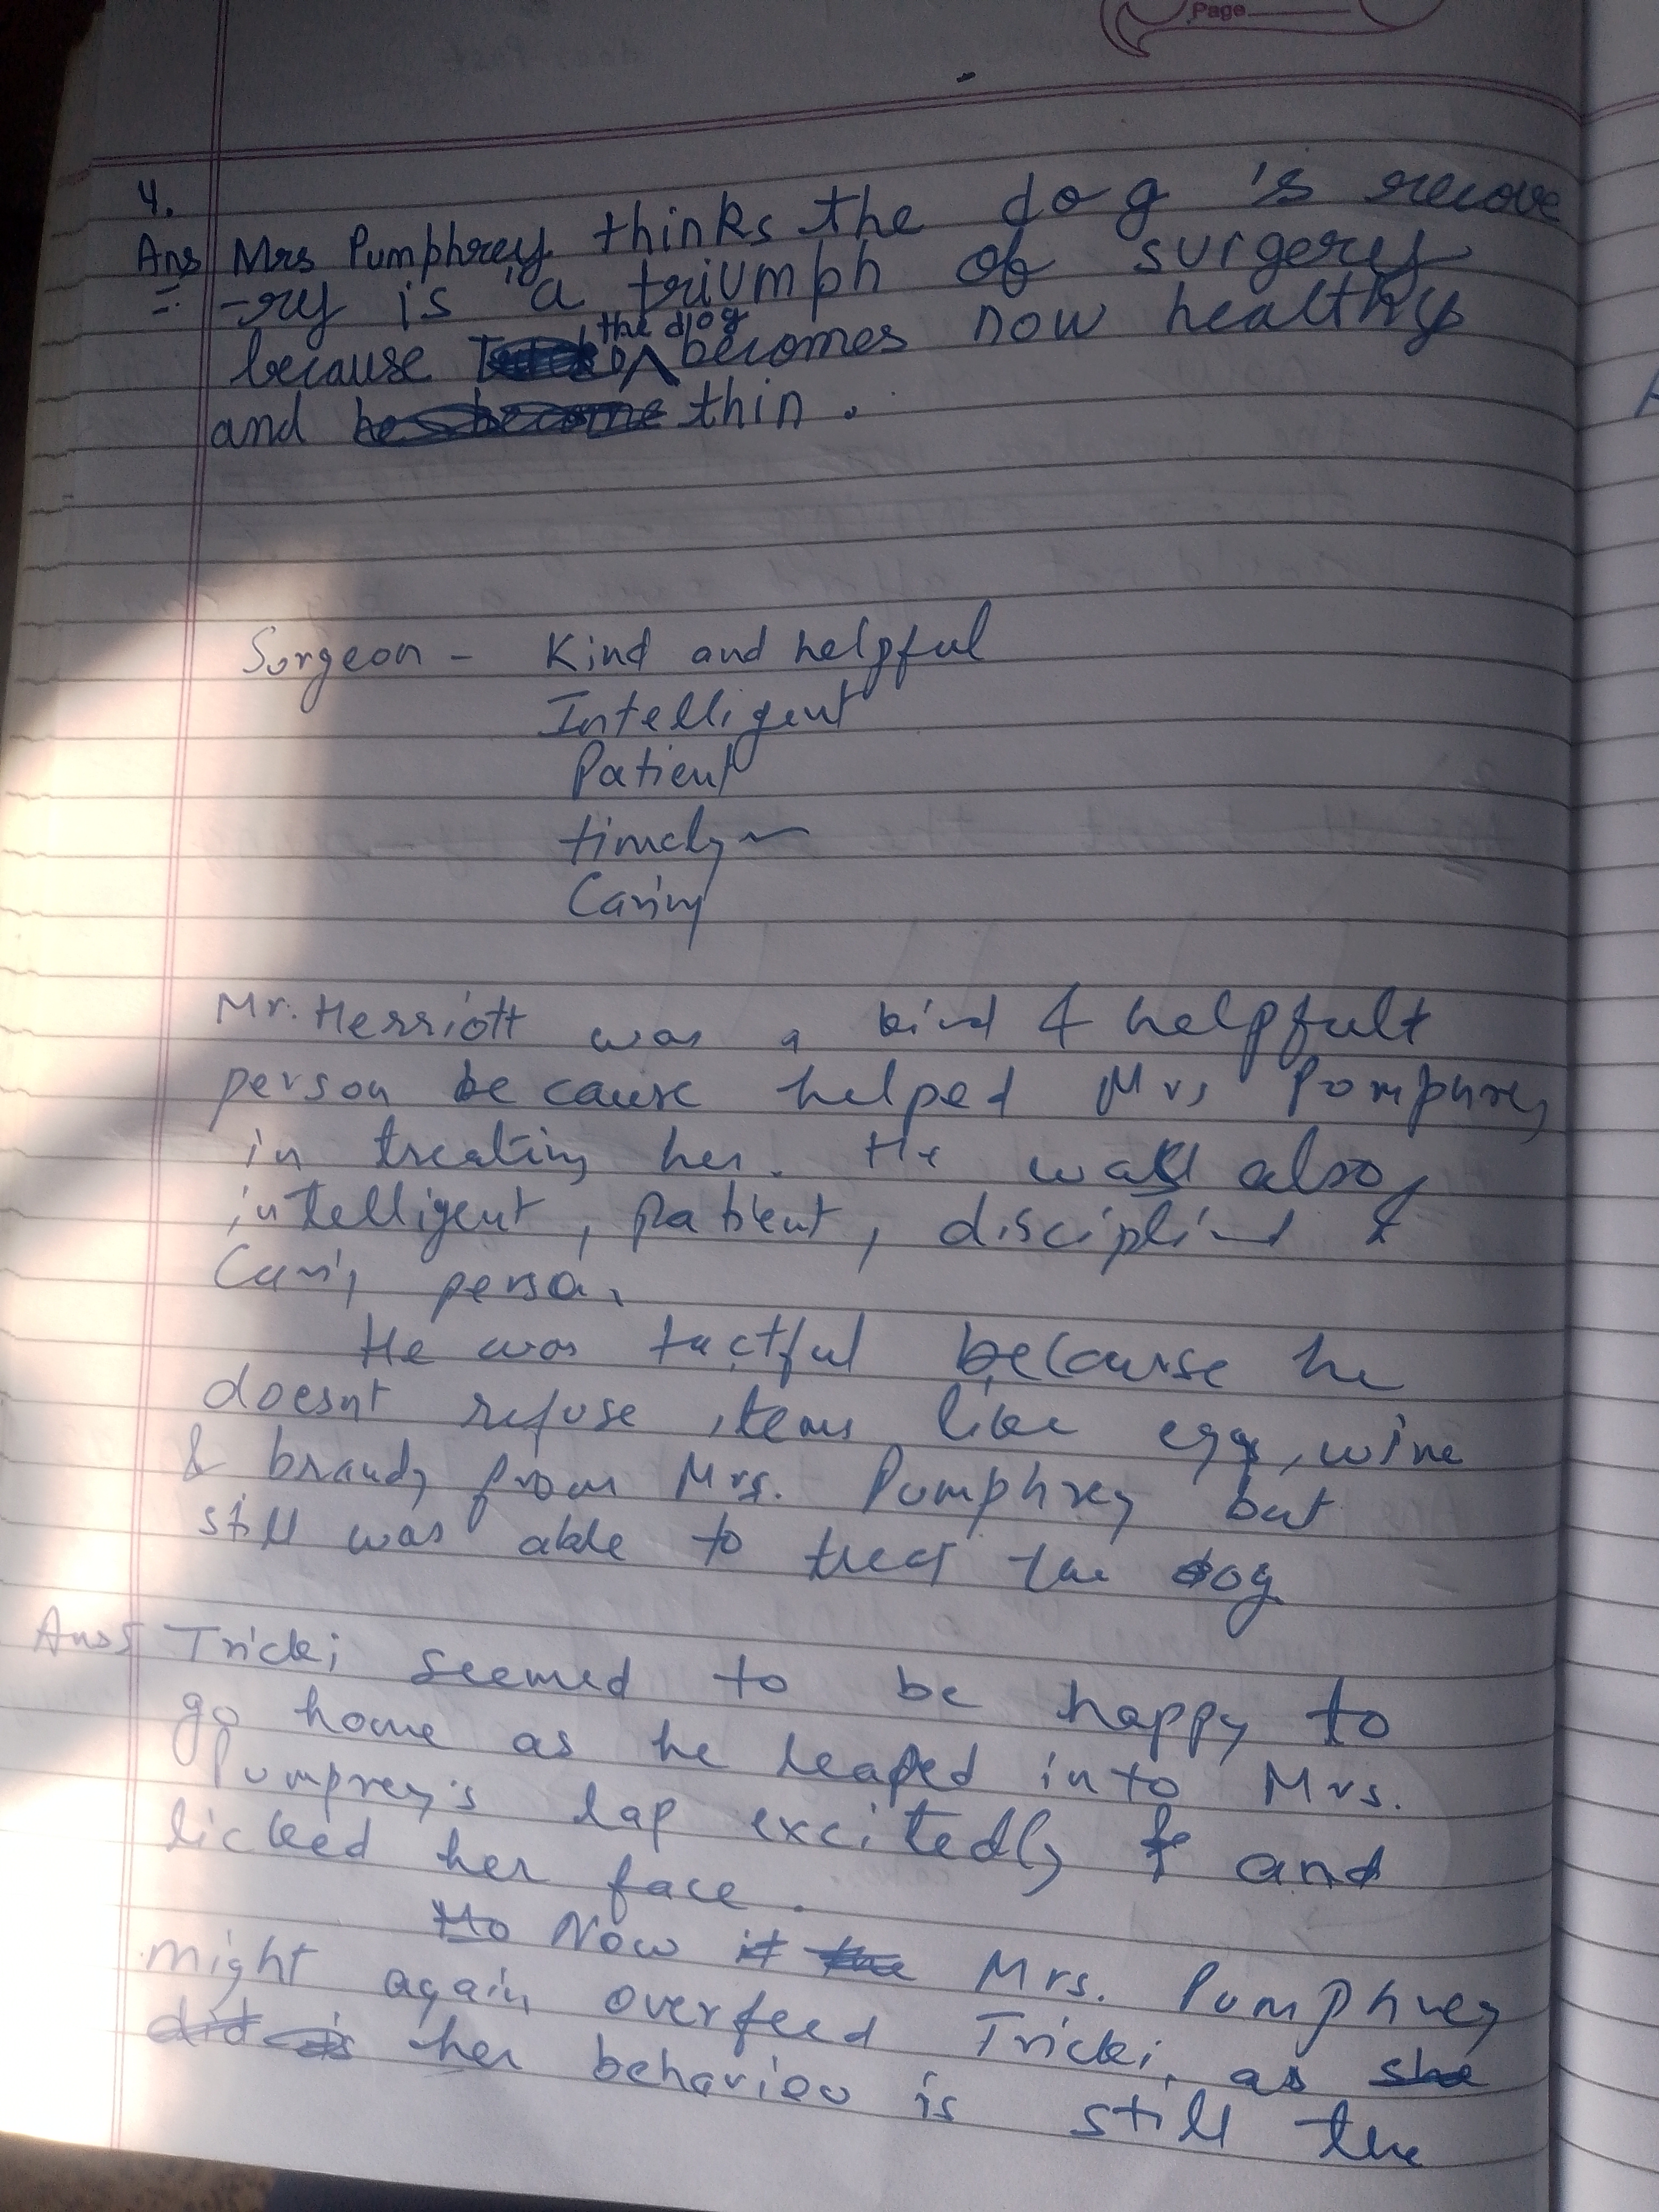 Page
4.
Ans Mrs Pumphrey thinks the dog is recove
-ry is "a triumph of surgery
because the dog becomes now healthy
and thin.
Surgeon - Kind and helpful
Intelligent
Patient
timely
Caring
Mr. Herriott was a kind & helpfult
person because helped Mrs Pomphrey
in treating her. He was also,
intelligent, patient, disciplind &
Caring person.
He was tactful because he
doesnt refuse items like egg, wine
& brandy from Mrs. Pumphrey but
still was able to treat the dog
Ans 5 Tricki seemed to be happy to
go home as he leaped into Mrs.
Pumprey's lap excitedly and
licked her face.
Now Mrs. Pumphrey
might again overfeed Tricki, as
her behaviou is still the